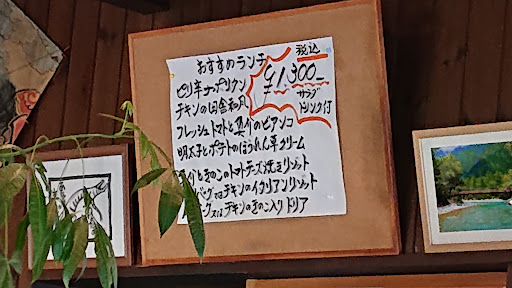 おすすめランチ
税込
¥1,300-
サラダ
ドリンク付
ピリ辛ナポリタン
チキンの田舎和風
フレッシュトマトと真イカのビアンコ
明太子とポテトのほうれん草クリーム
ときのこのトマトチーズ焼きリゾット
バーグ又はチキンのイタリアンリゾット
バーグ又はチキンのきのこ入りドリア